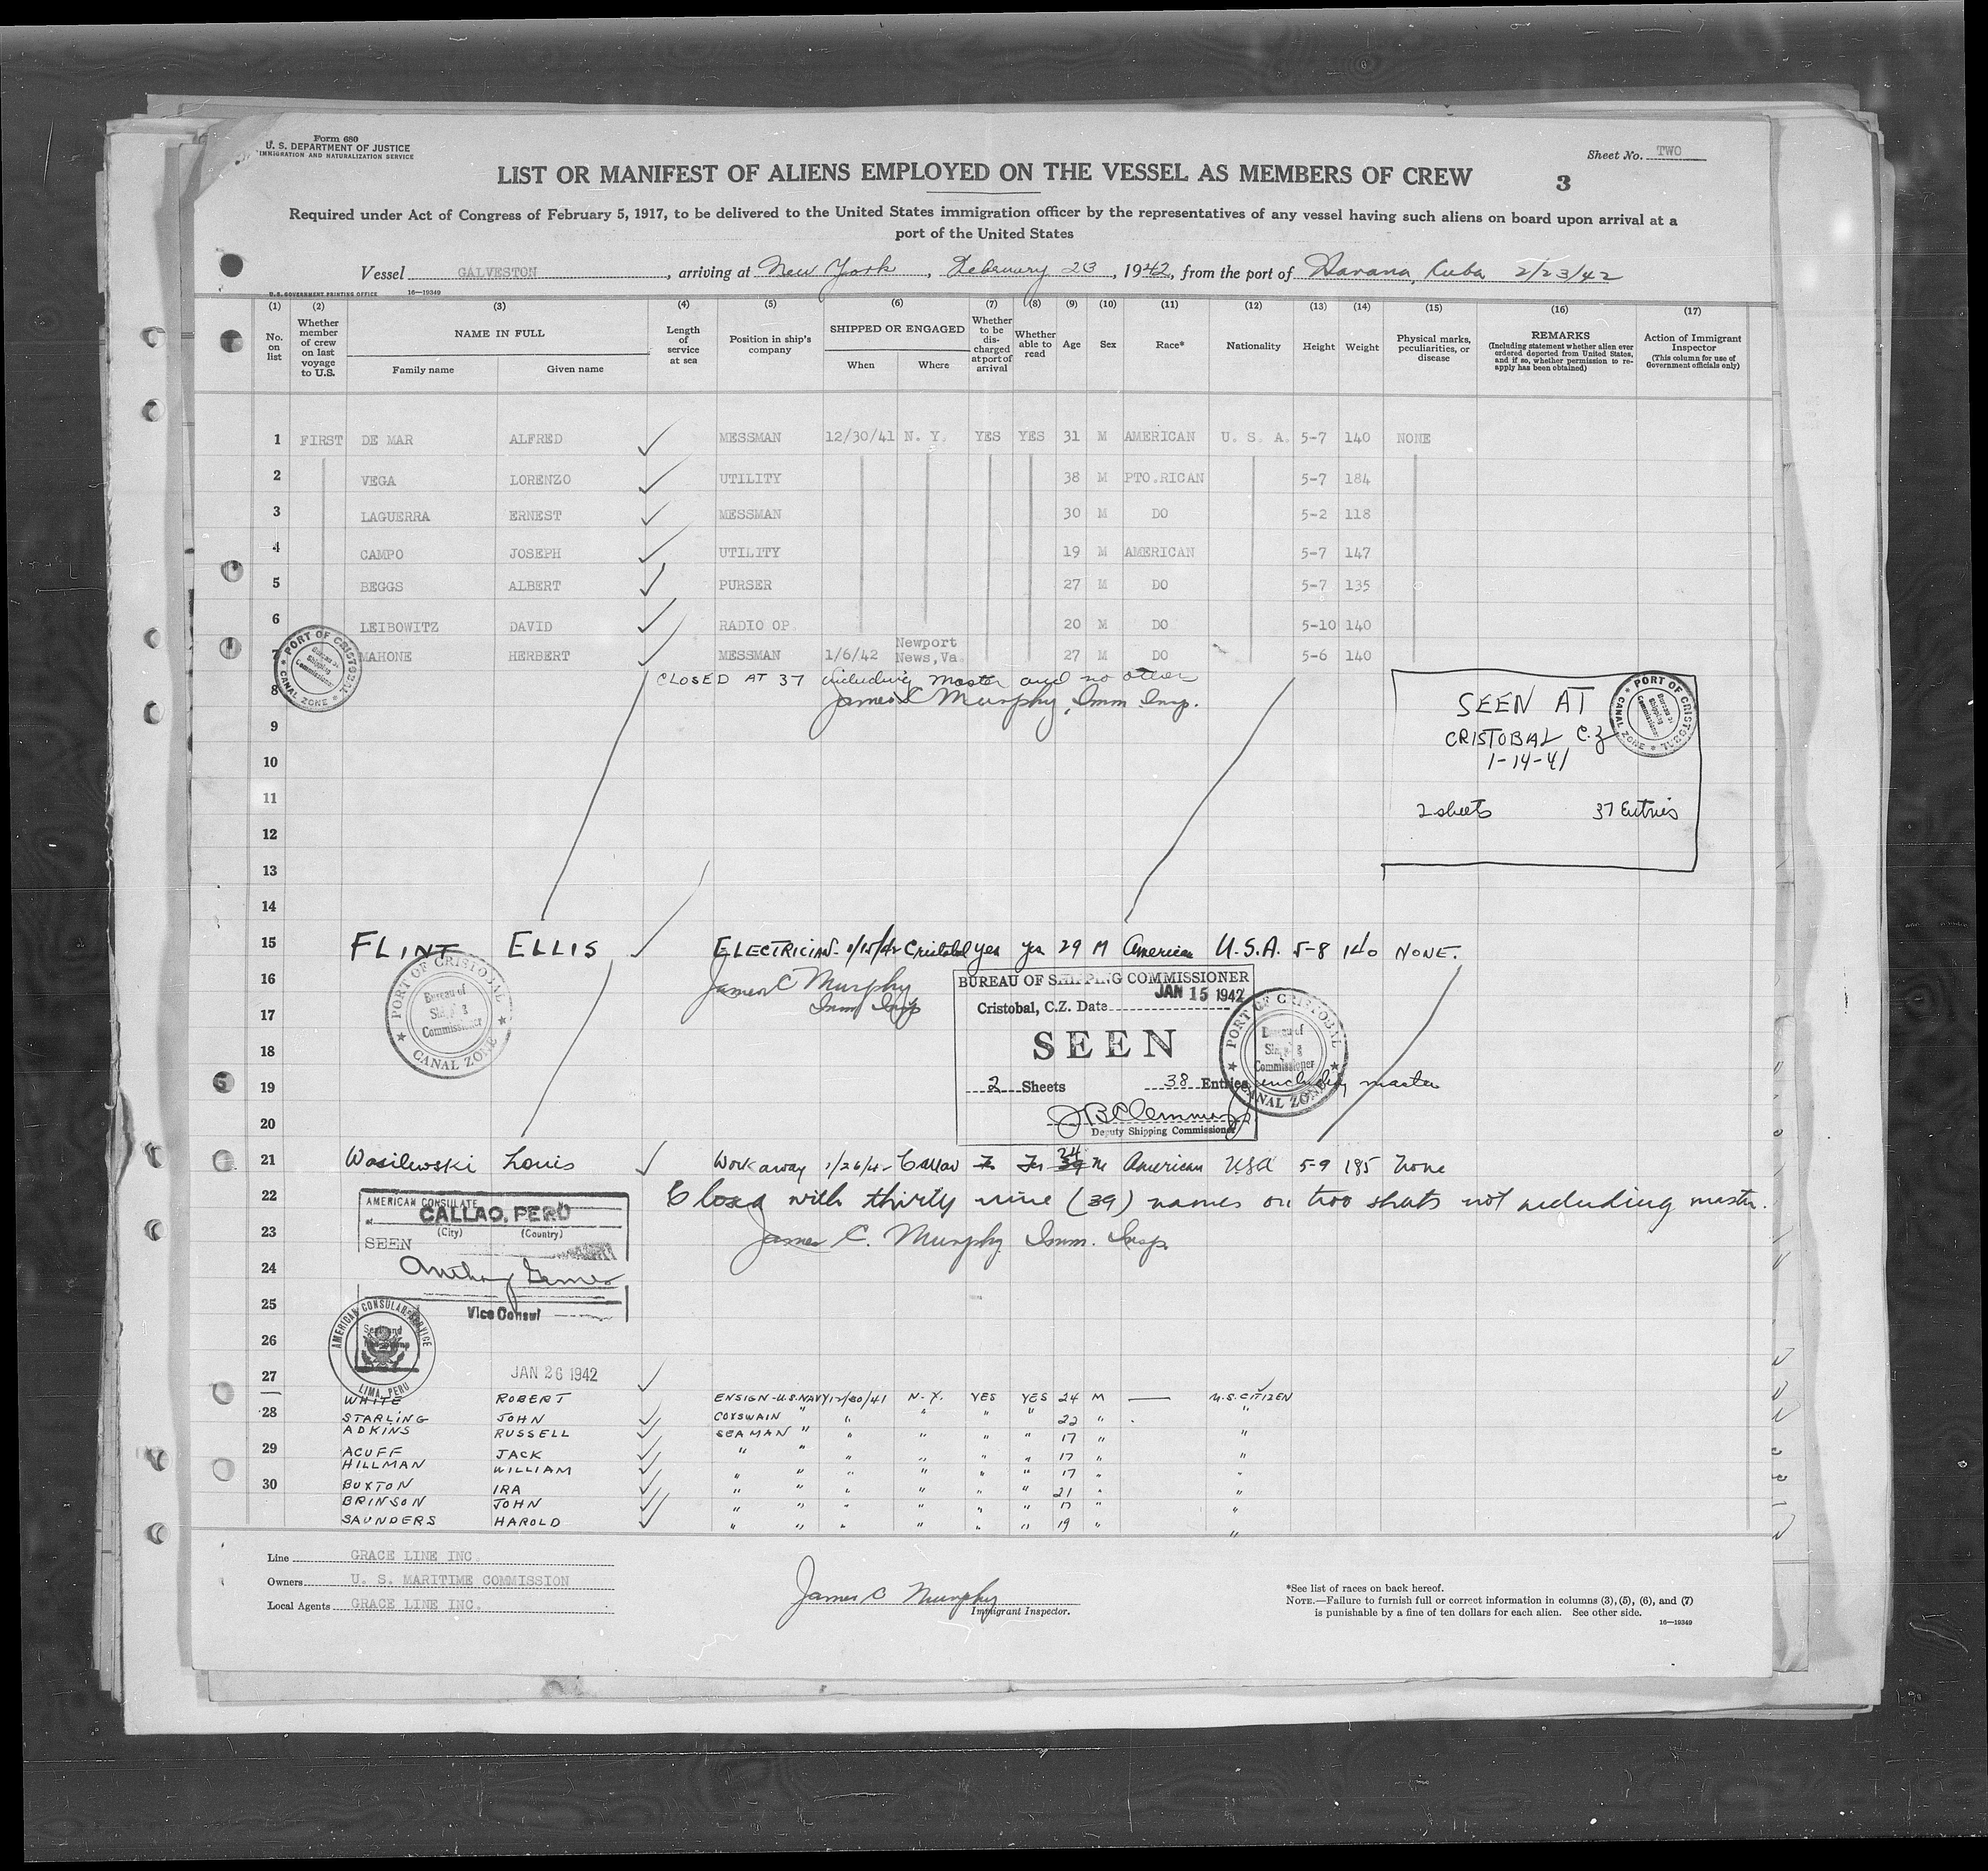 Form 680
U. S. DEPARTMENT OF JUSTICE
IMMIGRATION AND NATURALIZATION SERVICE
Sheet No. TWO
LIST OR MANIFEST OF ALIENS EMPLOYED ON THE VESSEL AS MEMBERS OF CREW
3
Required under Act of Congress of February 5, 1917, to be delivered to the United States immigration officer by the representatives of any vessel having such aliens on board upon arrival at a
port of the United States
Vessel GALVESTON, arriving at New York, February 23, 1942, from the port of Havana, Cuba 2/23/42
U. S. GOVERNMENT PRINTING OFFICE 16—19349
(1) (2) (3) (4) (5) (6) (7) (8) (9) (10) (11) (12) (13) (14) (15) (16) (17)
No. on list
Whether member of crew on last voyage to U.S.
NAME IN FULL
Family name Given name
Length of service at sea
Position in ship's company
SHIPPED OR ENGAGED
When Where
Whether to be discharged at port of arrival
Whether able to read
Age
Sex
Race*
Nationality
Height
Weight
Physical marks, peculiarities, or disease
REMARKS
(Including statement whether alien ever ordered deported from United States, and if so, whether permission to reapply has been obtained)
Action of Immigrant Inspector
(This column for use of Government officials only)
1 FIRST DE MAR ALFRED MESSMAN 12/30/41 N. Y. YES YES 31 M AMERICAN U. S. A. 5-7 140 NONE
2 VEGA LORENZO UTILITY 38 M PTO.RICAN 5-7 184
3 LAGUERRA ERNEST MESSMAN 30 M DO 5-2 118
4 CAMPO JOSEPH UTILITY 19 M AMERICAN 5-7 147
5 BEGGS ALBERT PURSER 27 M DO 5-7 135
6 LEIBOWITZ DAVID RADIO OP. 20 M DO 5-10 140
7 MAHONE HERBERT MESSMAN 1/6/42 Newport News, Va. 27 M DO 5-6 140
PORT OF CRISTOBAL
Bureau of Shipping Commissioner
CANAL ZONE
8 CLOSED AT 37 including master and no other
James C Murphy, Imm Insp.
SEEN AT
CRISTOBAL C.Z
1-14-41
2 sheets 37 Entries
PORT OF CRISTOBAL
Bureau of Shipping Commissioner
CANAL ZONE
9
10
11
12
13
14
15 FLINT ELLIS ELECTRICIAN 1/15/42 Cristobal yes yes 29 M American U.S.A. 5-8 140 NONE.
16 James C Murphy
Imm Insp
17
18
19
20
PORT OF CRISTOBAL
Bureau of Shipping Commissioner
CANAL ZONE
BUREAU OF SHIPPING COMMISSIONER
Cristobal, C.Z. Date JAN 15 1942
SEEN
2 Sheets 38 Entries including master
Deputy Shipping Commissioner
PORT OF CRISTOBAL
Bureau of Shipping Commissioner
CANAL ZONE
21 Wasilewski Louis Workaway 1/26/42 Callao 34 M American USA 5-9 185 None
22 Closed with thirty nine (39) names on two sheets not including master.
23 James C. Murphy Imm. Insp.
AMERICAN CONSULATE
at CALLAO, PERU
(City) (Country)
SEEN
24
25
Vice Consul
AMERICAN CONSULAR SERVICE
LIMA, PERU
26
27
JAN 26 1942
WHITE ROBERT ENSIGN-U.S.NAVY 12/30/41 N.Y. YES YES 24 M — U.S. CITIZEN
28 STARLING JOHN COXSWAIN " " " " " 22 " "
ADKINS RUSSELL SEAMAN " " " " " 17 " "
29 ACUFF JACK " " " " " " 17 " "
HILLMAN WILLIAM " " " " " " 17 " "
30 BUXTON IRA " " " " " " 21 " "
BRINSON JOHN " " " " " " 17 " "
SAUNDERS HAROLD " " " " " " 19 " "
Line GRACE LINE INC.
Owners U. S. MARITIME COMMISSION
Local Agents GRACE LINE INC.
James C Murphy
Immigrant Inspector.
*See list of races on back hereof.
NOTE.—Failure to furnish full or correct information in columns (3), (5), (6), and (7)
is punishable by a fine of ten dollars for each alien. See other side.
16—19349